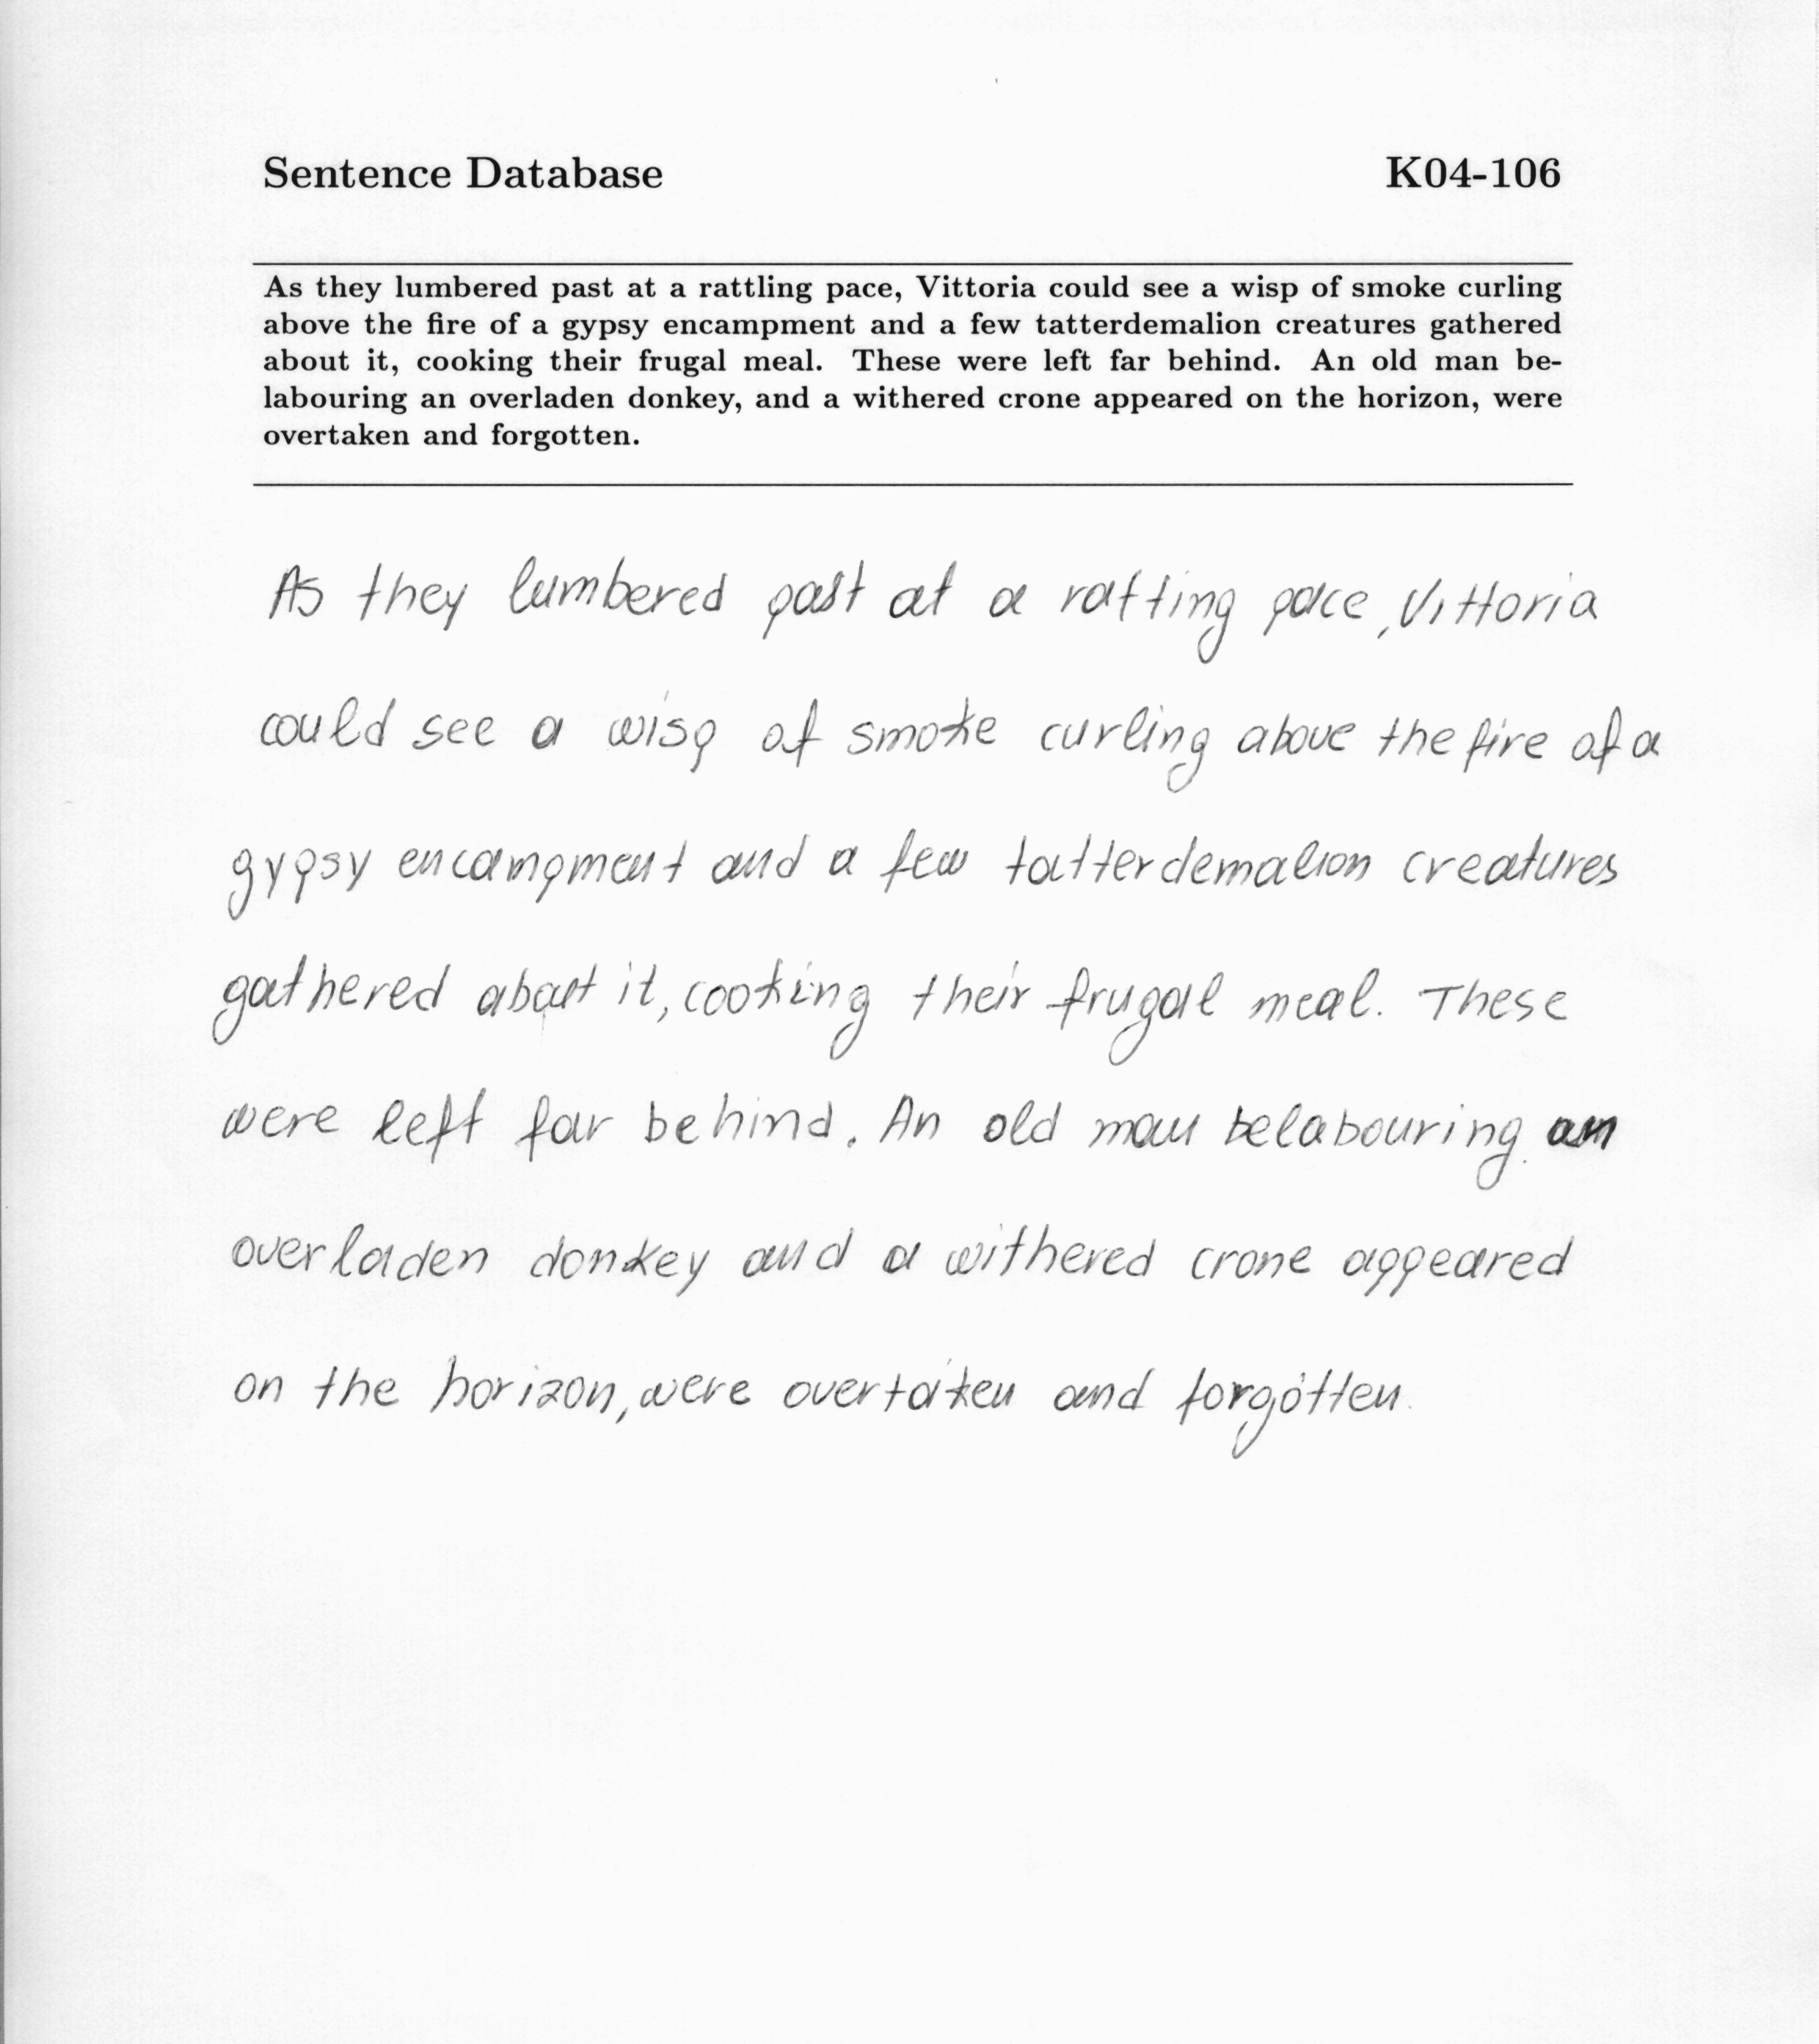 Sentence Database K04-106
As they lumbered past at a rattling pace, Vittoria could see a wisp of smoke curling
above the fire of a gypsy encampment and a few tatterdemalion creatures gathered
about it, cooking their frugal meal. These were left far behind. An old man be-
labouring an overladen donkey, and a withered crone appeared on the horizon, were
overtaken and forgotten.
As they lumbered past at a ratting pace, Vittoria
could see a wisp of smoke curling above the fire of a
gypsy encampment and a few tatterdemalion creatures
gathered about it, cooking their frugal meal. These
were left far behind. An old man belabouring an
overladen donkey and a withered crone appeared
on the horizon, were overtaken and forgotten.